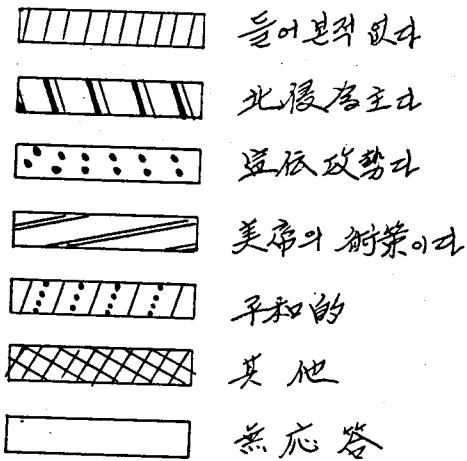 들어본적 없다
北侵為主다
宣伝攻勢다
美帝의 術策이다
平和的
其他
無応答